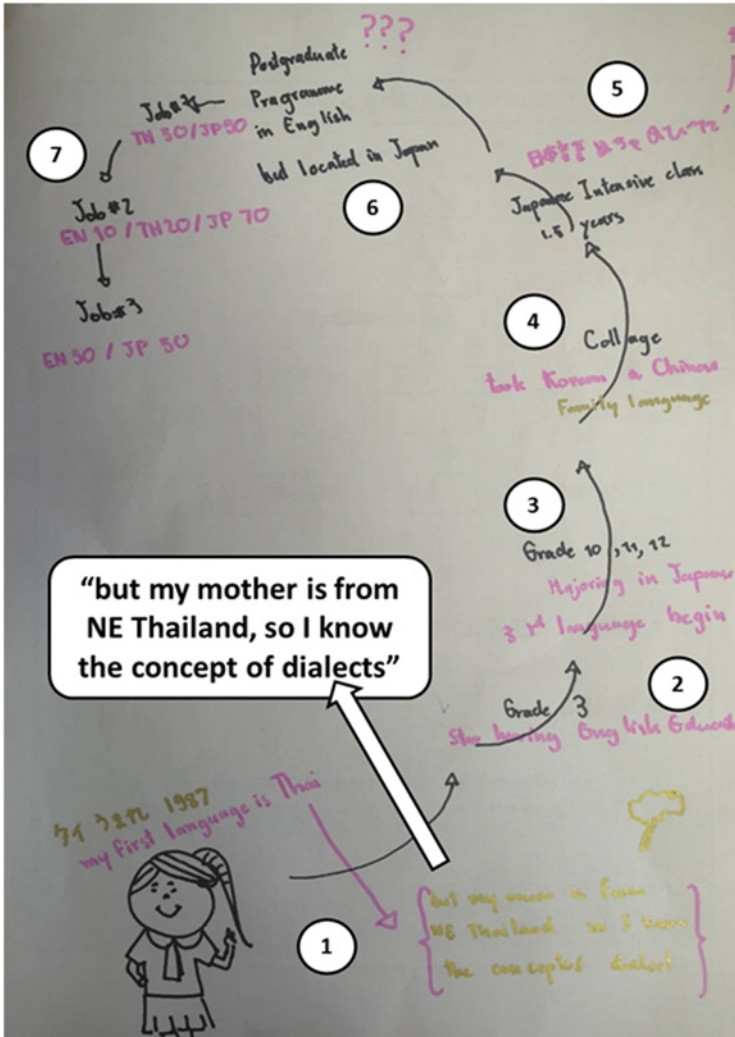 ???
Postgraduate
Programme
in English
but located in Japan
Job#1
TH 50/JP50
7
Job#2
EN 10/TH20/JP 70
Job#3
EN 50 / JP 50
6
5
日本言吾
Japanese Intensive class
1.5 years
4
Collage
took Korean & Chinese
Family language
3
Grade 10, 11, 12
Majoring in Japanese
3rd language begin
2
Grade 3
having English Educati
“but my mother is from
NE Thailand, so I know
the concept of dialects”
タイ うまれ 1987
my first language is Thai
1
but my mum is from
NE Thailand so I know
the concept of dialect